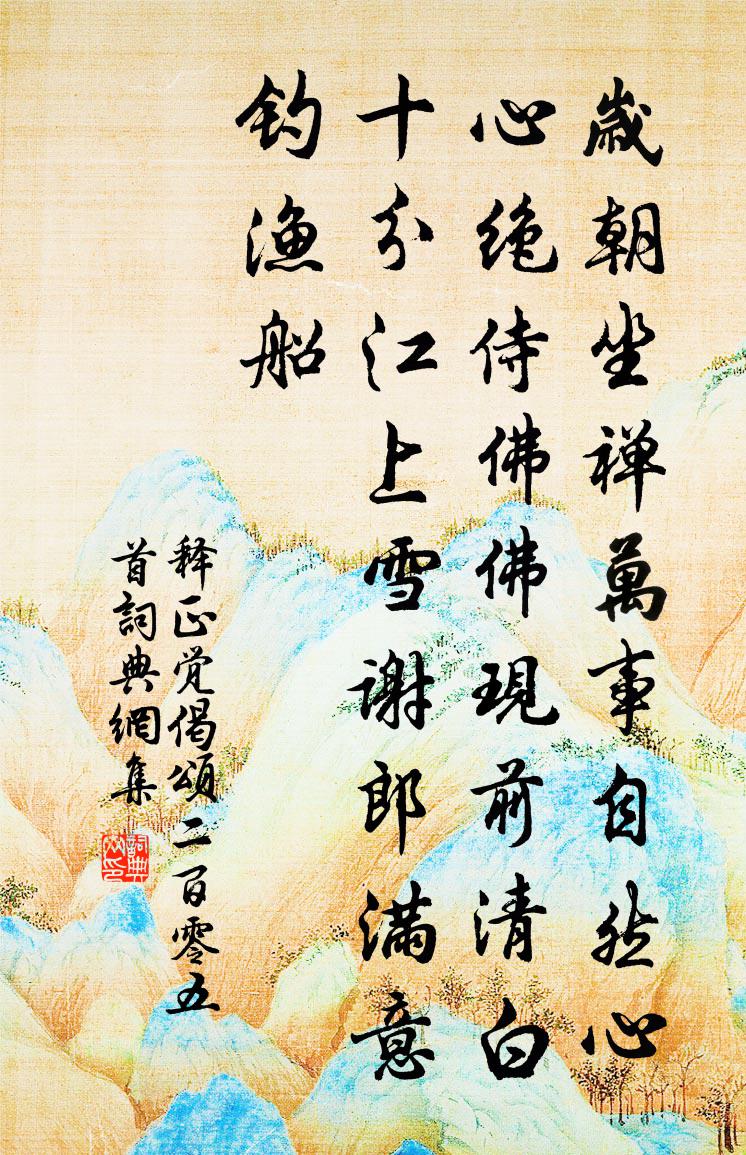 歲朝坐禅萬事自然心
心绝侍佛佛現前清白
十分江上雪谢郎满意
钓渔船
释正觉偈頌二百零五
首詞典網集
詞典